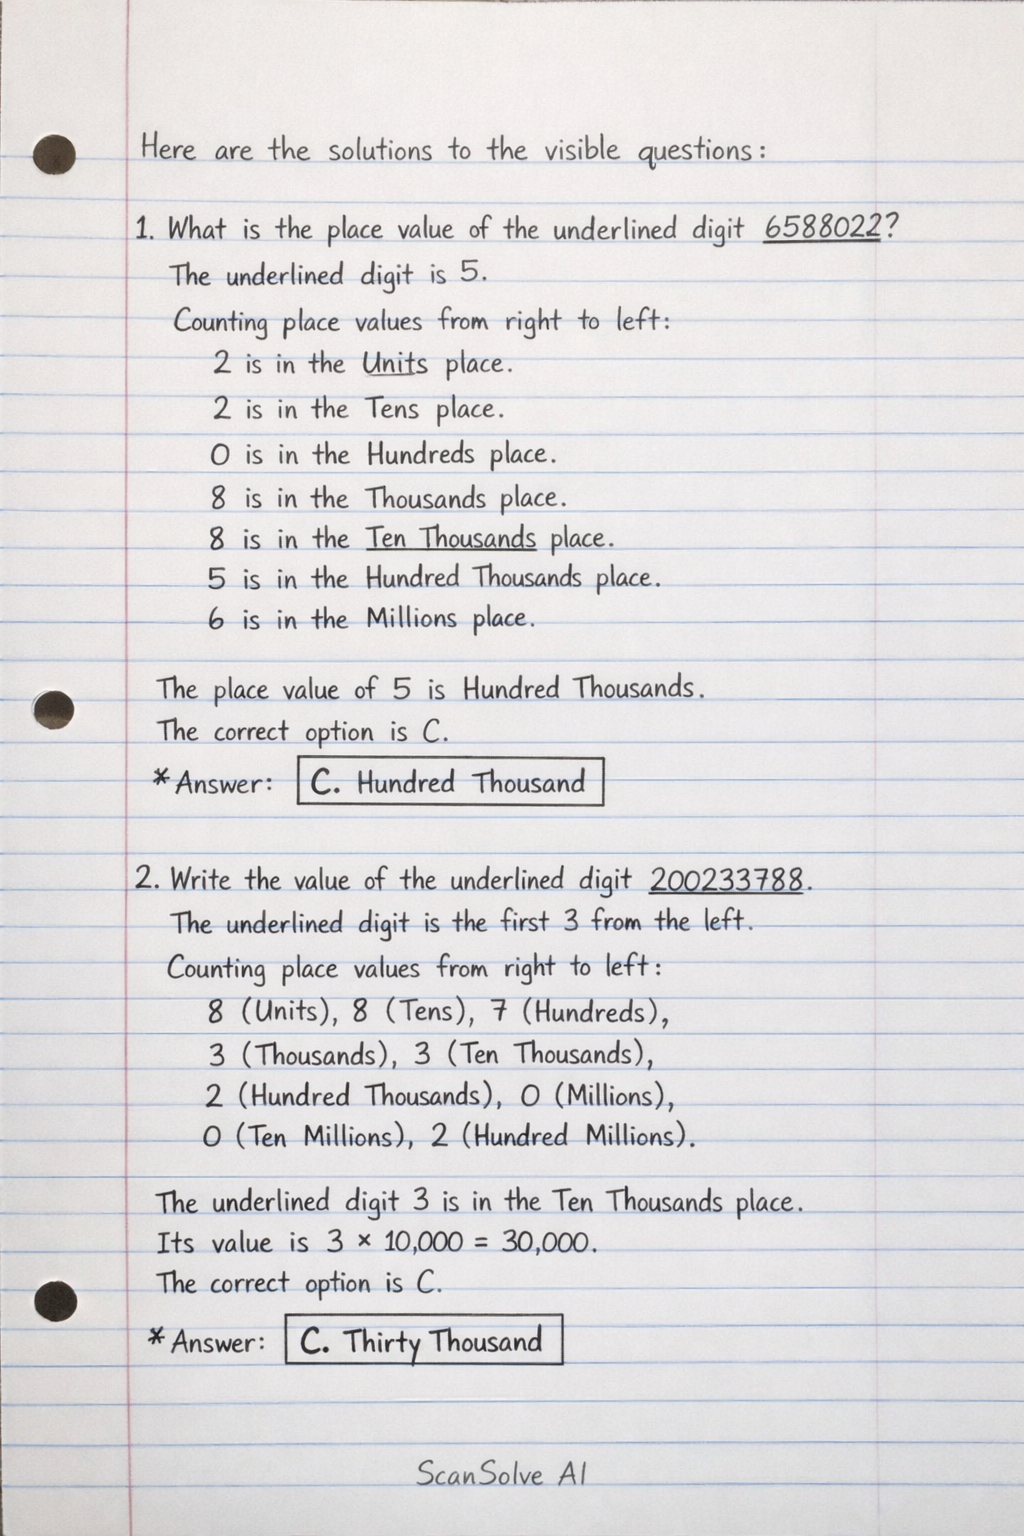 Here are the solutions to the visible questions:
1. What is the place value of the underlined digit 6588022?
The underlined digit is 5.
Counting place values from right to left:
2 is in the Units place.
2 is in the Tens place.
0 is in the Hundreds place.
8 is in the Thousands place.
8 is in the Ten Thousands place.
5 is in the Hundred Thousands place.
6 is in the Millions place.
The place value of 5 is Hundred Thousands.
The correct option is C.
*Answer: C. Hundred Thousand
2. Write the value of the underlined digit 200233788.
The underlined digit is the first 3 from the left.
Counting place values from right to left:
8 (Units), 8 (Tens), 7 (Hundreds),
3 (Thousands), 3 (Ten Thousands),
2 (Hundred Thousands), 0 (Millions),
0 (Ten Millions), 2 (Hundred Millions).
The underlined digit 3 is in the Ten Thousands place.
Its value is 3 × 10,000 = 30,000.
The correct option is C.
*Answer: C. Thirty Thousand
ScanSolve AI